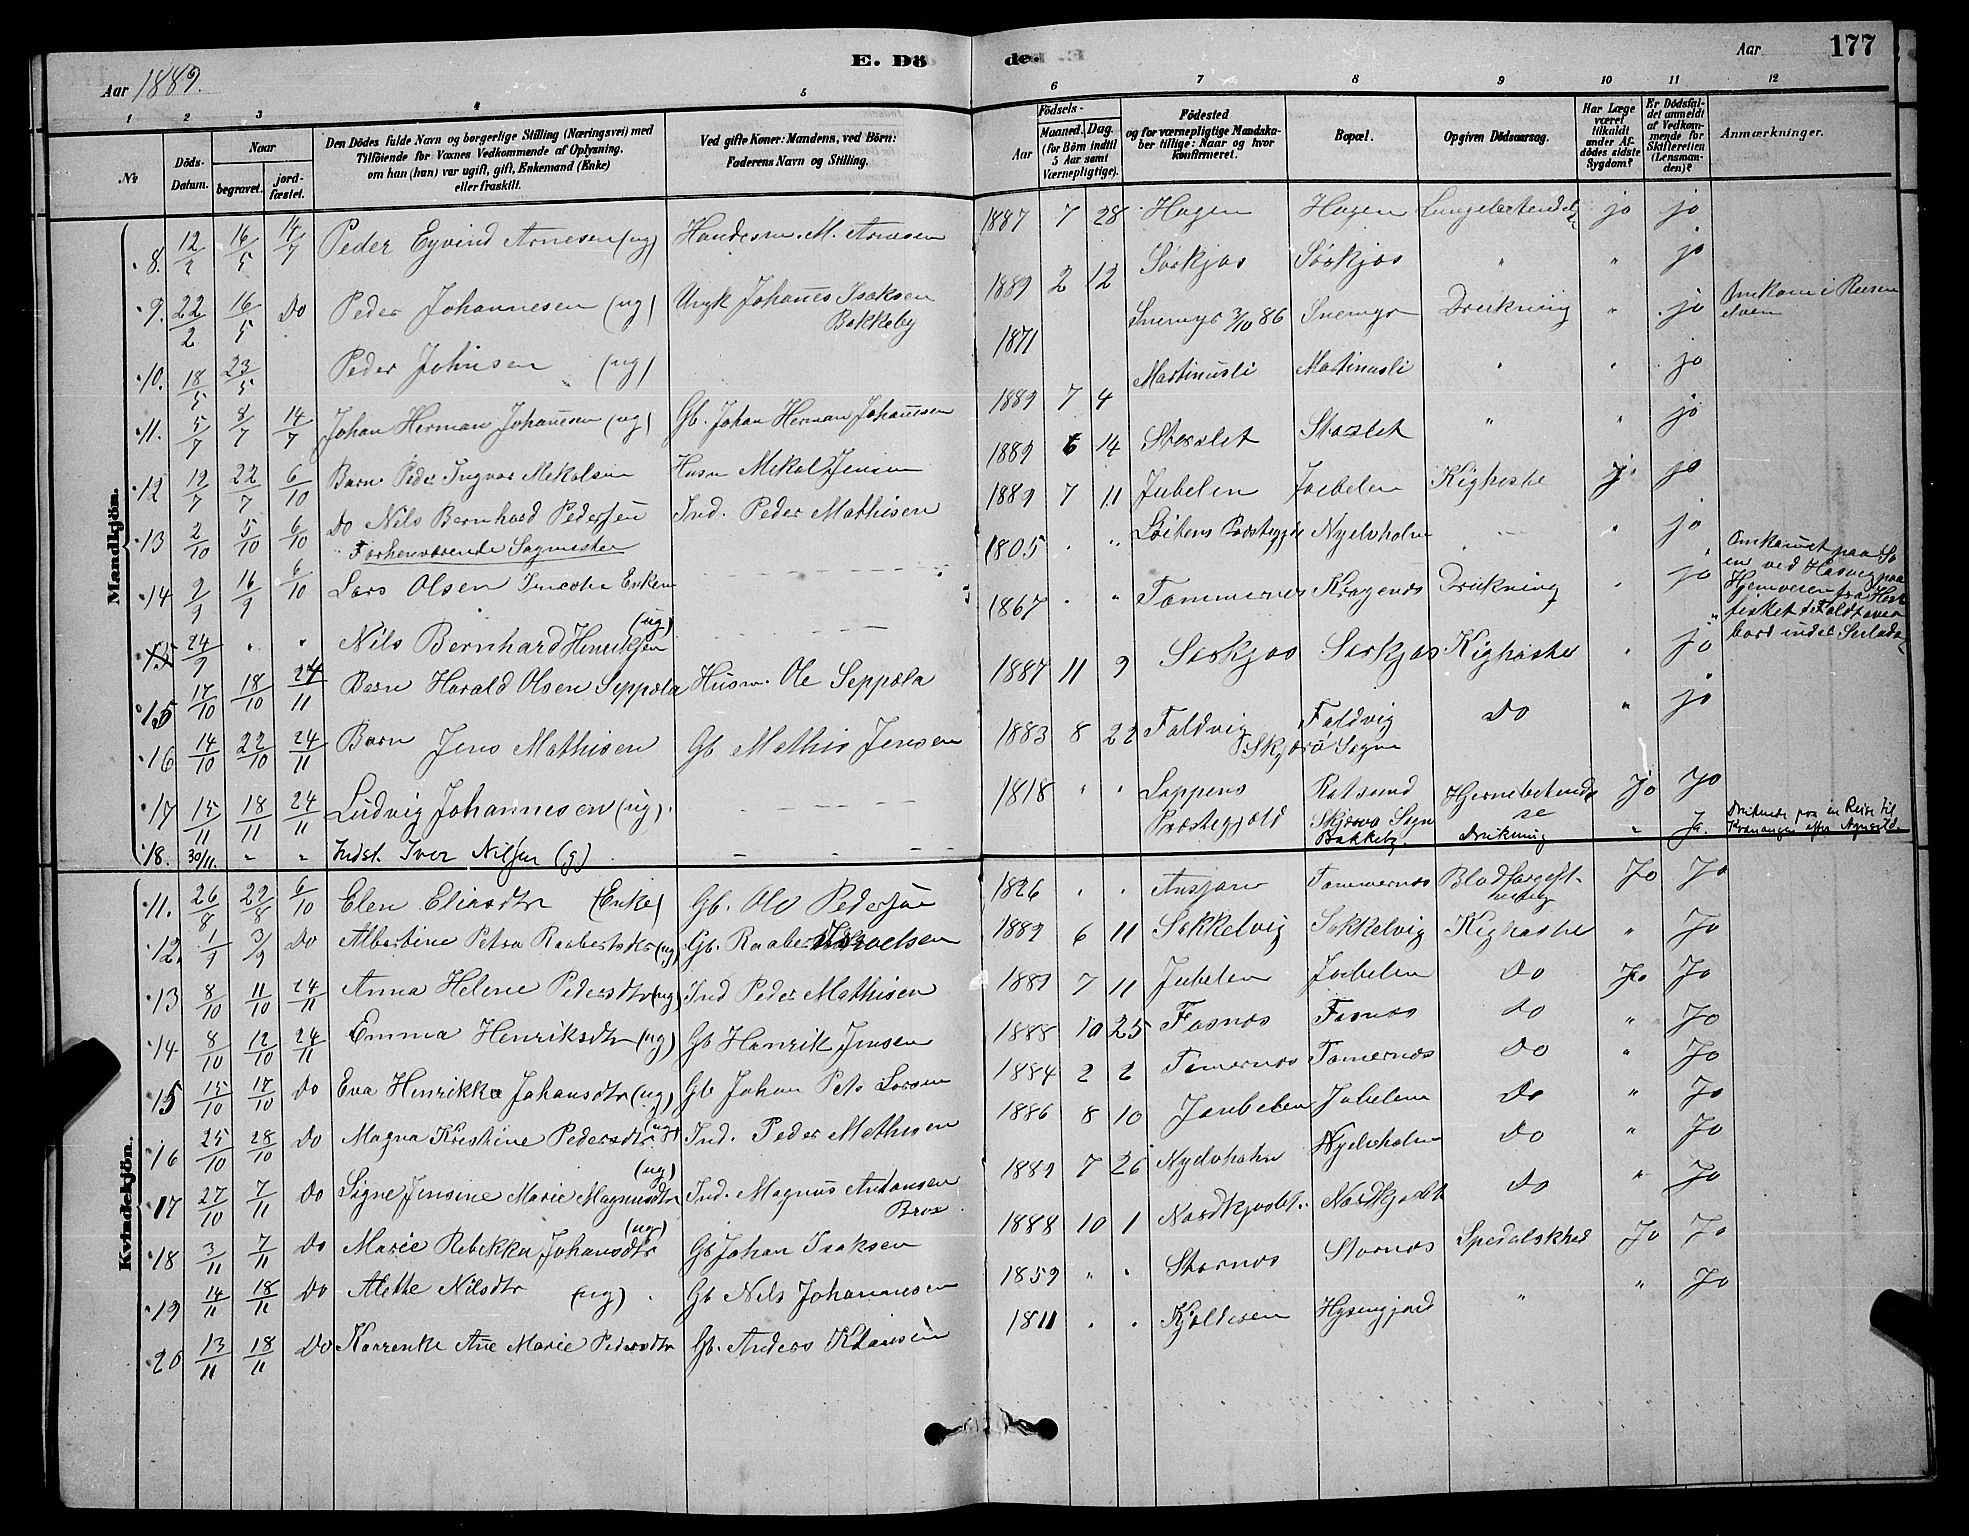 Aar 1889.
E. Dö
de.
Aar
177
1 2 3 4 5 6 7 8 9 10 11 12
No
Döds-Datum.
Naar
begravet.
jord-fæstet.
Den Dödes fulde Navn og borgerlige Stilling (Næringsvei) med
Tilföiende for Voxnes Vedkommende af Oplysning,
om han (hun) var ugift, gift, Enkemand (Enke)
eller fraskilt.
Ved gifte Koner: Mandens, ved Börn:
Faderens Navn og Stilling.
Födsels-
Aar
Maaned. Dag.
(for Börn indtil
5 Aar samt
Værnepligtige).
Födested
og for værnepligtige Mandska-
ber tillige: Naar og hvor
konfirmeret.
Bopæl.
Opgiven Dödsaarsag.
Har Læge
været
tilkaldt
under Af-
dödes sidste
Sygdom?
Er Dödsfal-
det anmeldt
af Vedkom-
mende for
Skifteretten
(Lensman-
den)?
Anmærkninger.
Mandkjön.
8. 12/2 16/5 Peder Eyvind Arnesen (ug) M. Arnesen 1887 7 28 Hagen Hagen jo jo
9. 22/2 16/5 Do Peder Johannesen (ug) Johanes Isaksen Bakkeby 1889 2 12 Sørkjos Sørkjos " " jo
10. 18/5 23/5 Peder Johnsen (ug) 1871 Snemyr 3/10 86 Snemyr Drukning " jo Omkom i Reisen elven
11. 5/7 8/7 14/7 Johan Herman Johanesen (ug) Gb. Johan Herman Johanesen 1889 7 4 Martinusli Martinusli " " jo
12 12/7 22/7 6/10 Barn Peder Ingvar Mekalsen Husm Mekal Jensen 1889 6 14 Storslet Storslet " " jo
13 2/10 5/10 6/10 Do Nils Bernhard Pedersen Ind. Peder Mathisen 1889 7 11 Jubelen Joebelen Kighoste jo jo
Forhenværende Sagmester
14 2/9 16/9 6/10 Lars Olsen Enkem 1805 Løitens Præstegj Nyelvholm " jo
15 24/9 " " Nils Bernhard Henriksen (ug) 1867 " " Tømmernes Kragenes Drukning " jo
15 17/10 18/10 24/11 Barn Harald Olsen Seppola Husm. Ole Seppola 1887 11 9 Sørkjos Sørkjos Kighoste " jo
16 14/10 22/10 24/11 Barn Jens Mathisen Gb Mathis Jensen 1883 8 22 Foldvig Skjærvø Sogn Foldvig Do " jo
17 15/11 18/11 24/11 Ludvig Johannesen (ug). 1818 " " Loppens Præstegjæld Rotsund Skjærvø Sogn Jo Jo
18. 30/11. " " Indst. Iver Nilsen (g) Bakkeby. Drukning " Ja.
Kvindekjön.
11. 26/8 22/8 6/10 Elen Eliasdtr (Enke) Gb. Ole Pedersen 1826 " " Tømmernes Jo Jo
12. 1/9 3/9 Do Albertine Petra Raabertsdtr (ug) Gb. 1889 6 11 Sokkelvig Sokkelvig Kighoste " Jo
13 8/10 11/10 24/11 Anna Helene Pedersdtr (ug) Ind Peder Mathisen 1889 7 11 Jubelen Joebelen Do Jo Jo
14 8/10 12/10 24/11 Emma Henriksdtr (ug) Gb Henrik Jensen 1888 10 25 Fosnes Fosnes Do " Jo
15 15/10 17/10 Do Eva Henrikka Johansdtr (ug) Gb Johan Pet. Larsen 1884 2 2 Tømernes Tømernes Do " Jo
16 25/10 28/10 Do Magna Kristine Pedersdtr (ug) Ind. Peder Mathisen 1886 8 10 Joubelen Jubelen Do " Jo
17 27/10 7/11 Do Signe Jensine Marie Magnusdtr (ug) Ind. Magnus Antonsen 1889 7 26 Nyelvholm Nyelvholm Do " Jo
18 3/11 7/11 Do Marie Rebekka Johansdtr (ug) Gb Johan Isaksen 1888 10 1 Nordkjosbt. Nordkjosbt Do " Jo
19 14/11 18/11 Do Alette Nilsdtr (ug) Gb Nils Johannesen 1859 " " Stornes Stornes Spedalskhed Jo Jo
20 13/11 18/11 Do Karrenke Ane Marie Pedersdtr Gb. Anders Klausen 1811 " " Kjoldesen " " Jo